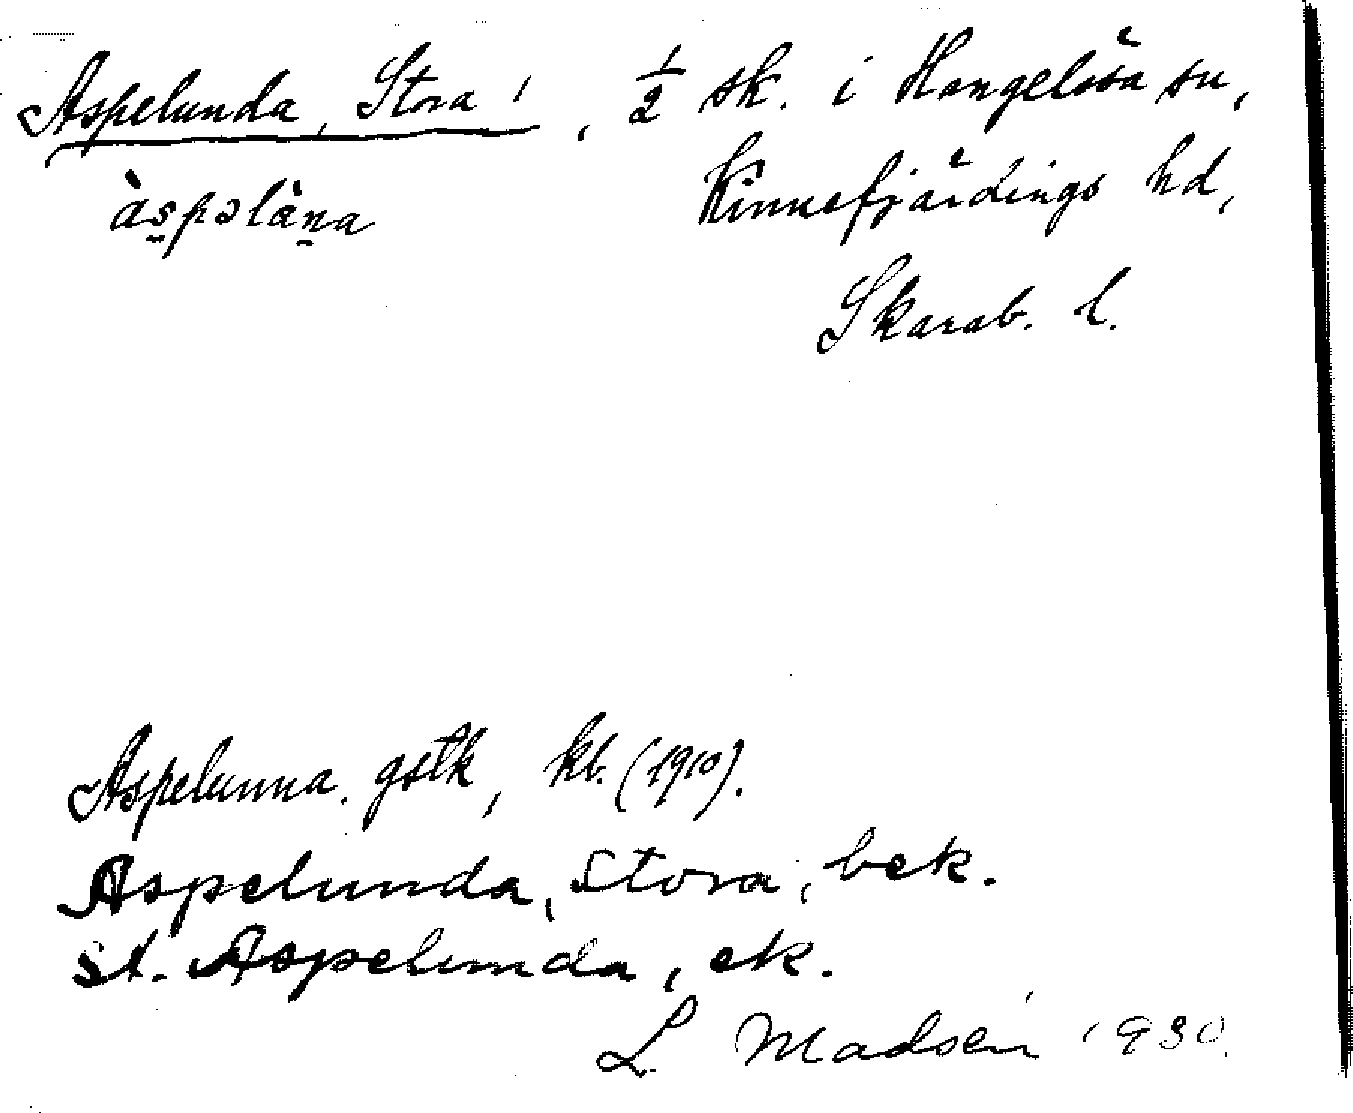 Aspelunda, Stora ', ½ sk. i Hangelösa sn,
àspəlàna Kinnefjärdings hd,
Skarab. l.
Aspelunna. gstk, kb. (1910).
Aspelunda, Stora, bek.
St. Aspelunda, ek.
L. Madsén 1930.